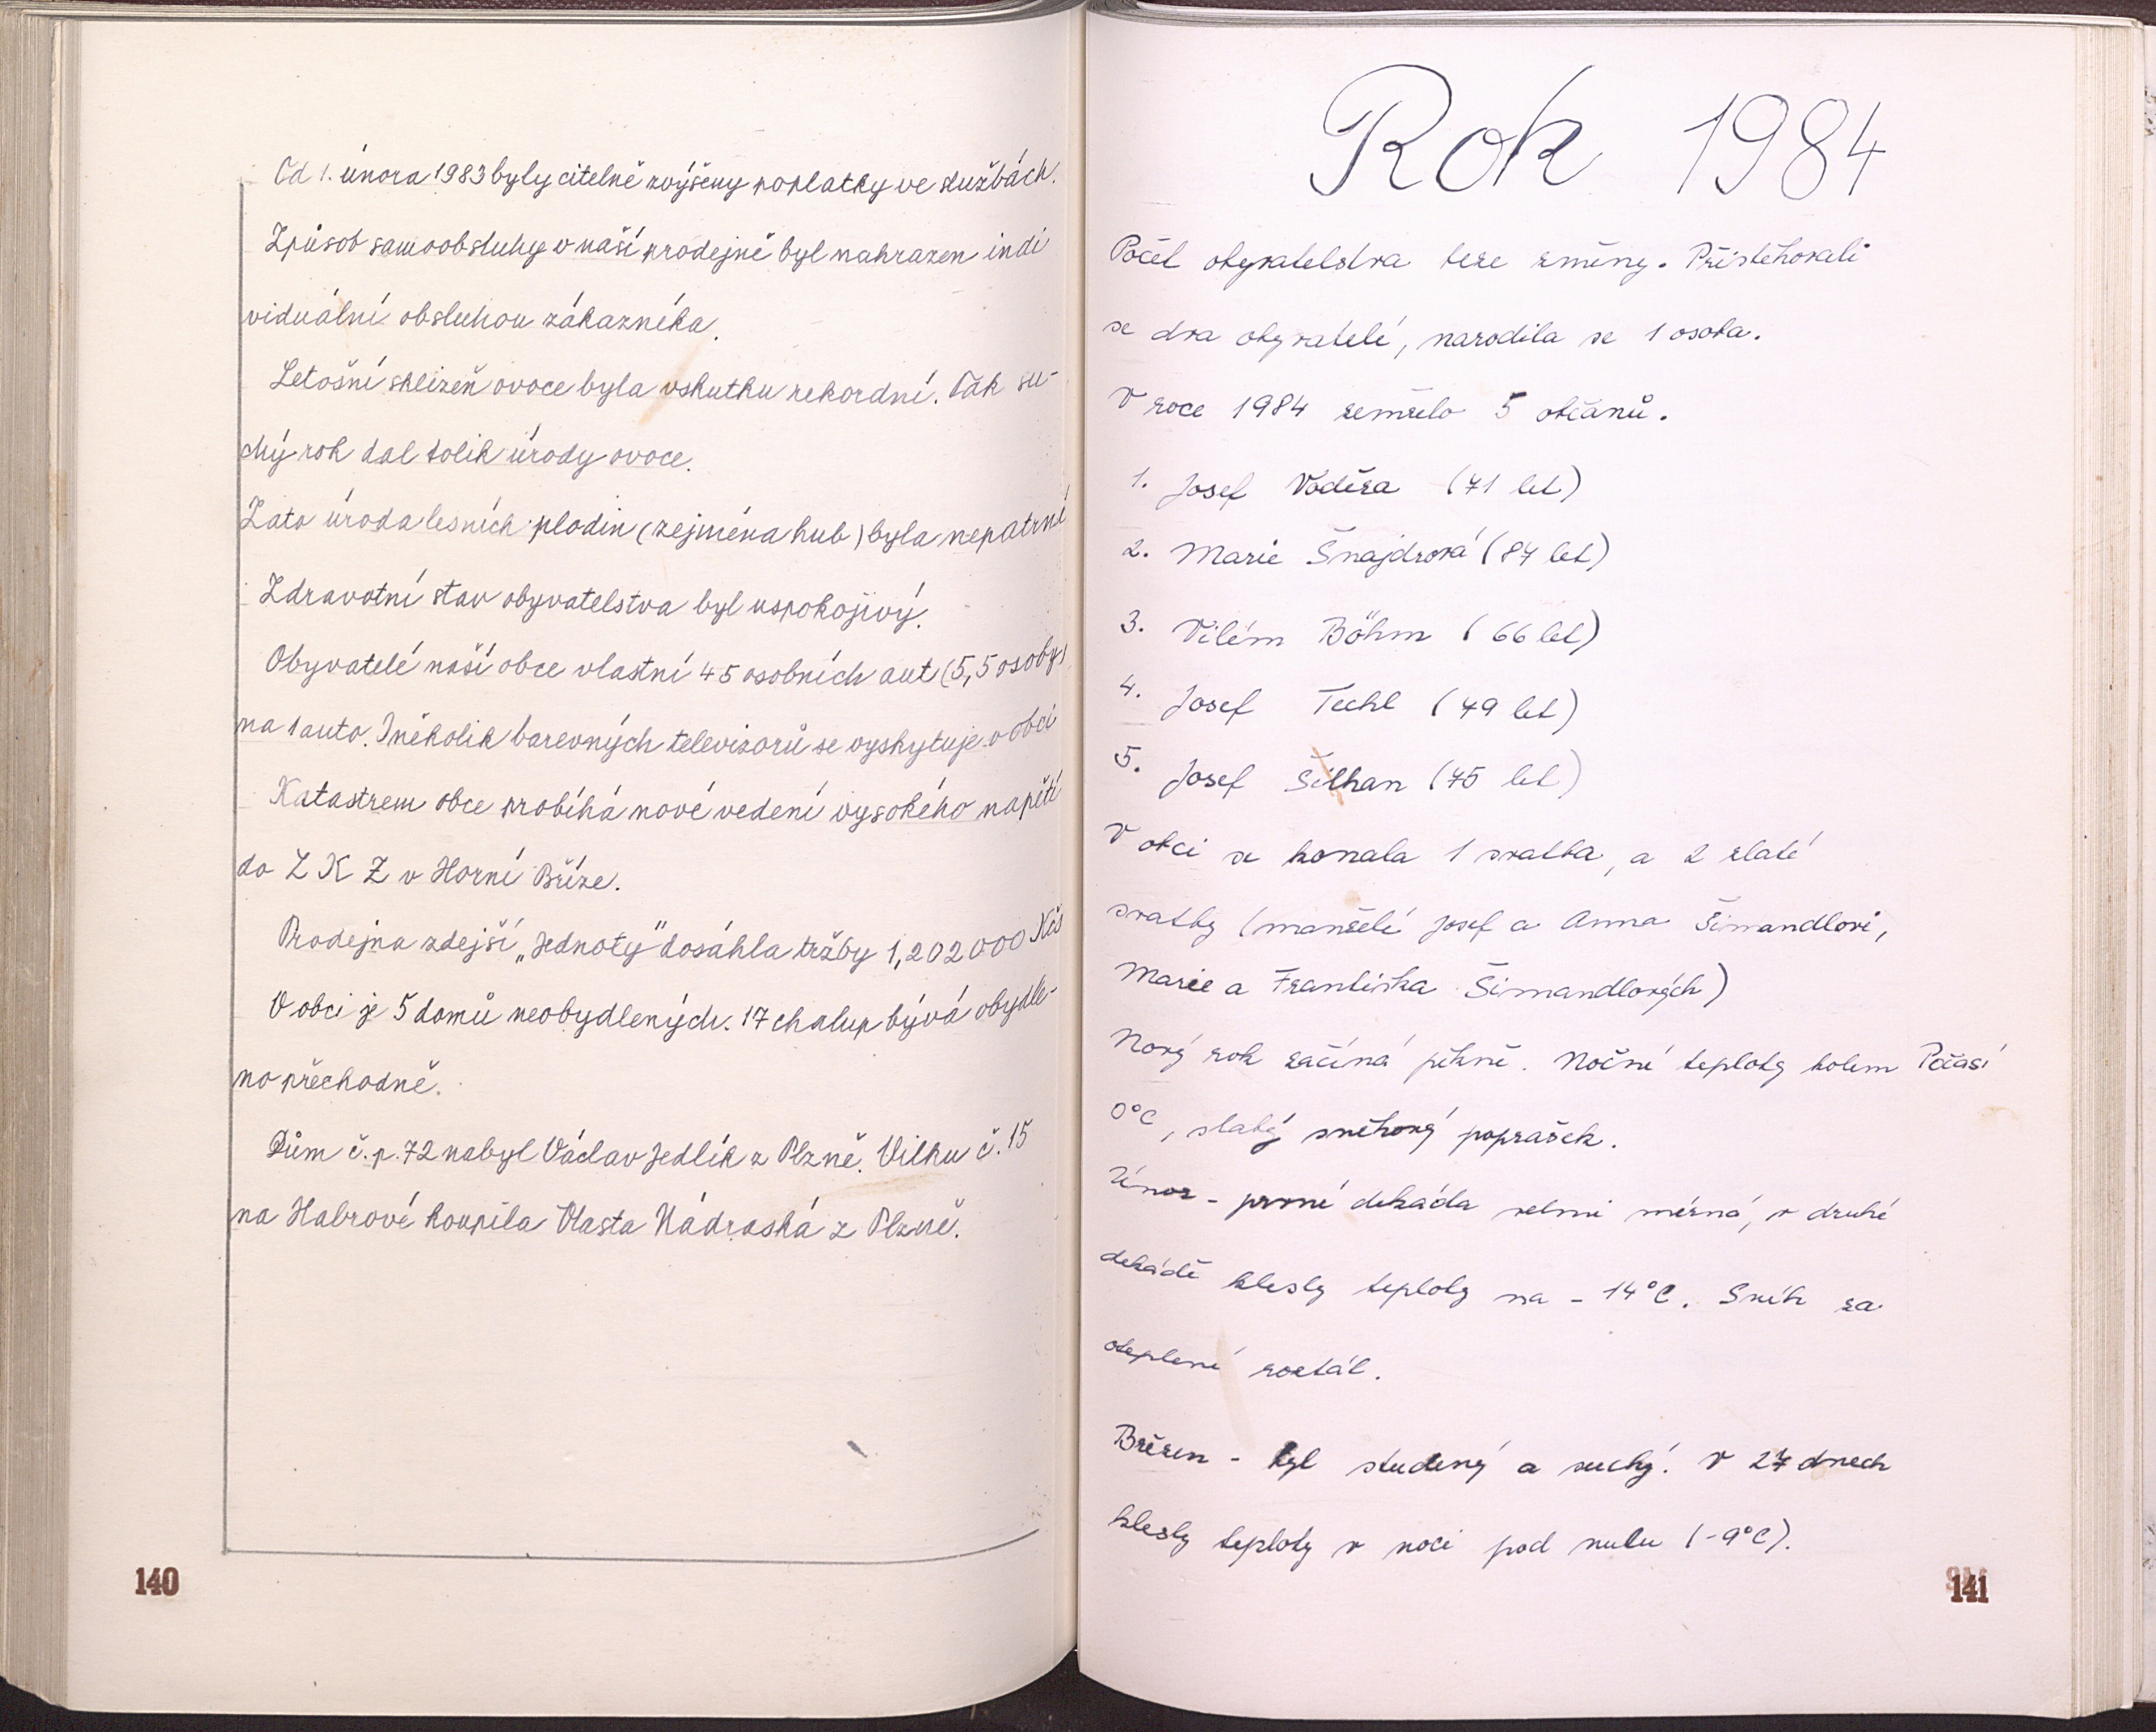 Od 1. února 1983 byly citelně zvýšeny poplatky ve službách.
Způsob samoobsluhy v naší prodejně byl nahrazen indi
viduální obsluhou zákazníka.
Letošní sklizeň ovoce byla vskutku rekordní. Tak su-
chý rok dal tolik úrody ovoce.
Zato úroda lesních plodin (zejména hub) byla nepatrná
Zdravotní stav obyvatelstva byl uspokojivý.
Obyvatelé naší obce vlastní 45 osobních aut (5,5 osoby)
na 1 auto. I několik barevných televizorů se vyskytuje v obci
Katastrem obce probíhá nové vedení vysokého napětí
do Z K Z v Horní Bříze.
Prodejna zdejší „Jednoty" dosáhla tržby 1,202000 Kčs
V obci je 5 domů neobydlených. 17 chalup bývá obydle-
no přechodně.
Dům č.p. 72 nabyl Václav Jedlík z Plzně. Vilku č. 15
na Habrové koupila Vlasta Nádraská z Plzně.
140
Rok 1984
Počet obyvatelstva beze změny. Přistěhovali
se dva obyvatelé, narodila se 1 osoba.
V roce 1984 zemřelo 5 občanů.
1. Josef Voděra (71 let)
2. Marie Šnajdrová (84 let)
3. Vilém Böhm (66 let)
4. Josef Techl (49 let)
5. Josef Šilhan (75 let)
V obci se konala 1 svatba, a 2 zlaté
svatby (manželé Josef a Anna Šimandlovi,
Marie a Františka Šimandlových)
Nový rok začíná pěkně. Noční teploty kolem Počasí
0°C, slabý sněhový poprašek.
Únor - první dekáda velmi mírná, v druhé
dekádě klesly teploty na - 14°C. Sníh za
oteplení roztál.
Březen - byl studený a suchý. V 27 dnech
klesly teploty v noci pod nulu (-9°C).
141